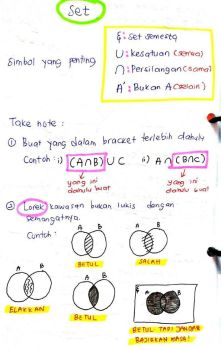 Set
Simbol yang penting
ξ : set semesta
U : kesatuan (semua)
∩ : Persilangan (sama)
A' : Bukan A (selain)
Take note :
① Buat yang dalam bracket terlebih dahulu
Contoh : i) (A∩B) U C ii) A∩(B∩C)
yang ini dahulu buat
yang ini dahulu buat
② Lorek kawasan bukan lukis dengan
semangatnya.
Contoh :
A B
BETUL
A B
SALAH
A B
ELAKKAN
A B
BETUL
A B
BETUL TAPI JANGAN
BAZIRKAN MASA!